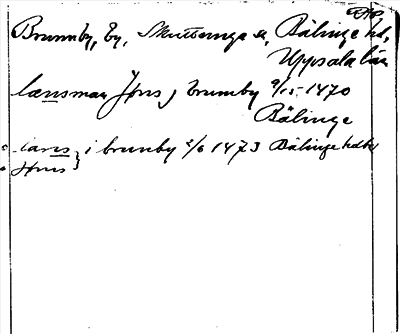 Brunnby, by, Skuttunge sn, Bälinge hd,
Uppsala län
lænsman Jøns j brunby 9/15 1470
Bälinge
ians } i brunby 2/6 1473 Bälinge hdbr
Jøns